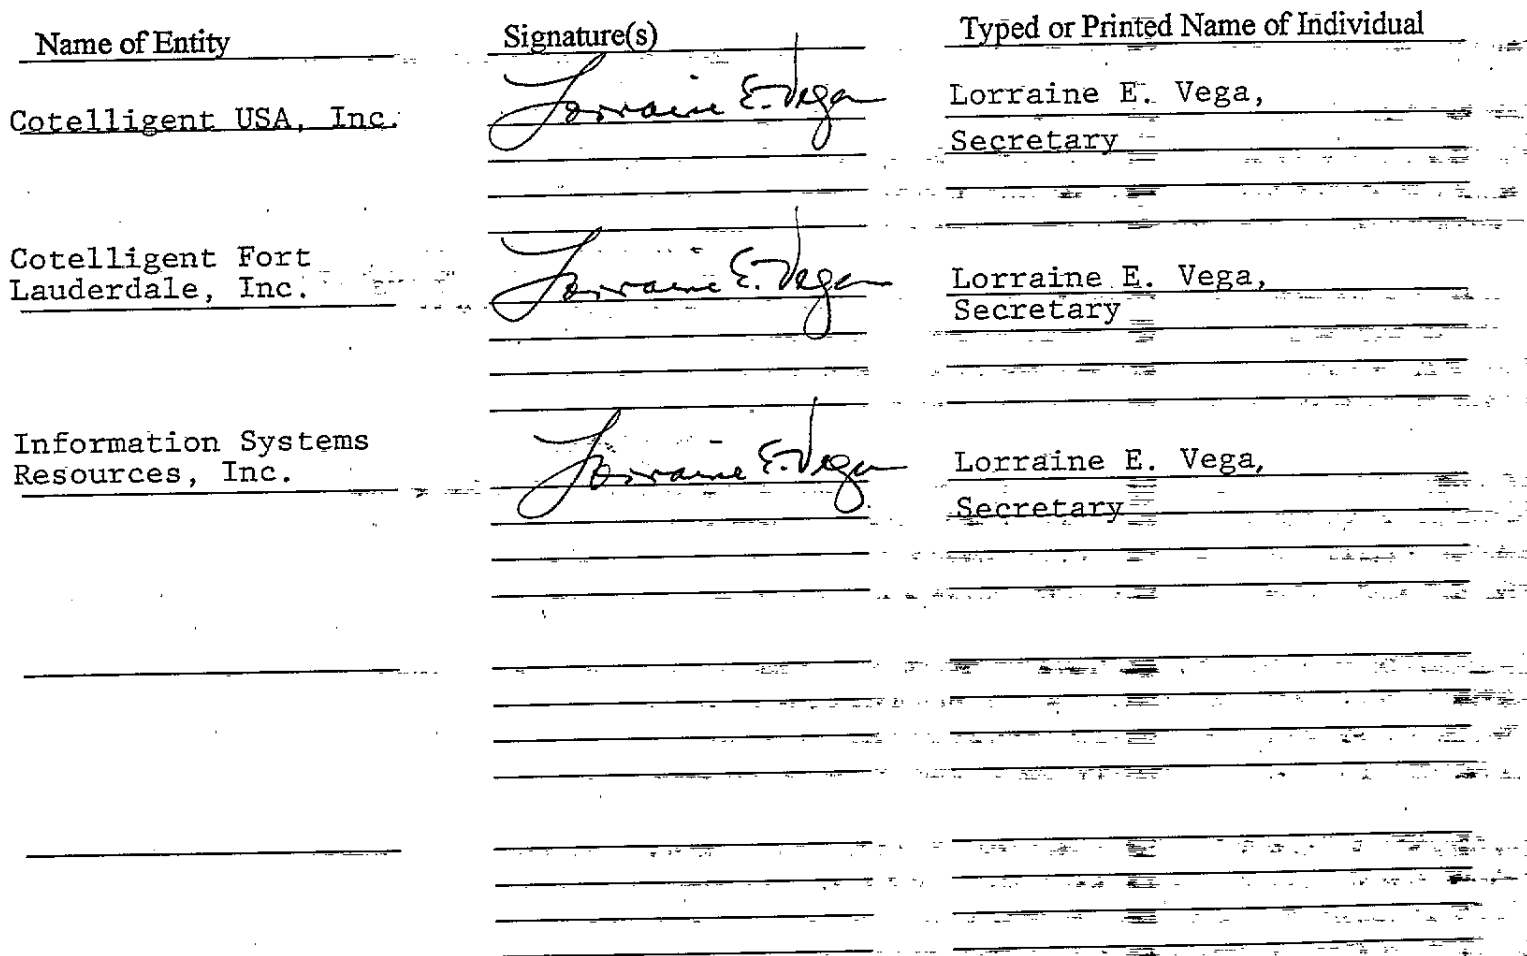 Name of Entity Signature(s) Typed or Printed Name of Individual
Cotelligent USA, Inc. Lorraine E. Vega Lorraine E. Vega,
Secretary
Cotelligent Fort
Lauderdale, Inc. Lorraine E. Vega Lorraine E. Vega,
Secretary
Information Systems
Resources, Inc. Lorraine E. Vega Lorraine E. Vega,
Secretary